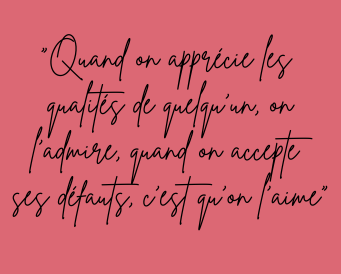 "Quand on apprécie les
qualités de quelqu'un, on
l'admire, quand on accepte
ses défauts, c'est qu'on l'aime"